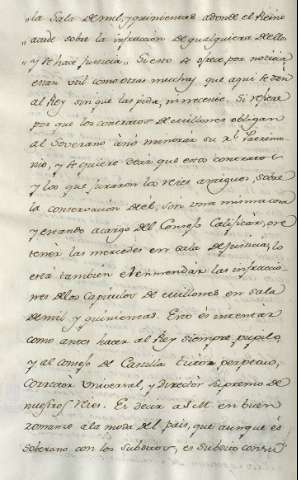 "la Sala de mil, y quinientas adonde el Reino
"acude sobre la infracción de qualquiera de ello
"y se hace justicia" Si esto se ofrece por noticia
es tan util como otras muchas que aqui se dan
al Rey sin que las pida, ni necesite. Si se fiere
por que los contratos de millones obligan
al Soverano a no menorar su rl. Patrimo
nio, y se quiere decir que estos contratos
y los que juraron los reies antiguos, sobre
la conservacion de él, son una misma cosa
y estando a cargo del Consejo Calificar, ore
tener las mercedes en sala de justicia, lo
está tambien el enmendar las infraccio
nes de los Capitulos de millones en sala
de mil y quinientas. Esto es intentar
como antes hacer al Rey siempre pupilo
y al consejo de Castilla tutor perpetuo,
Curador Universal, y director supremo de
nuestros Reies. Es decir a S. M. en buen
romance a la moda del pais, que aunque es
soberano con los subditos, es subdito con su